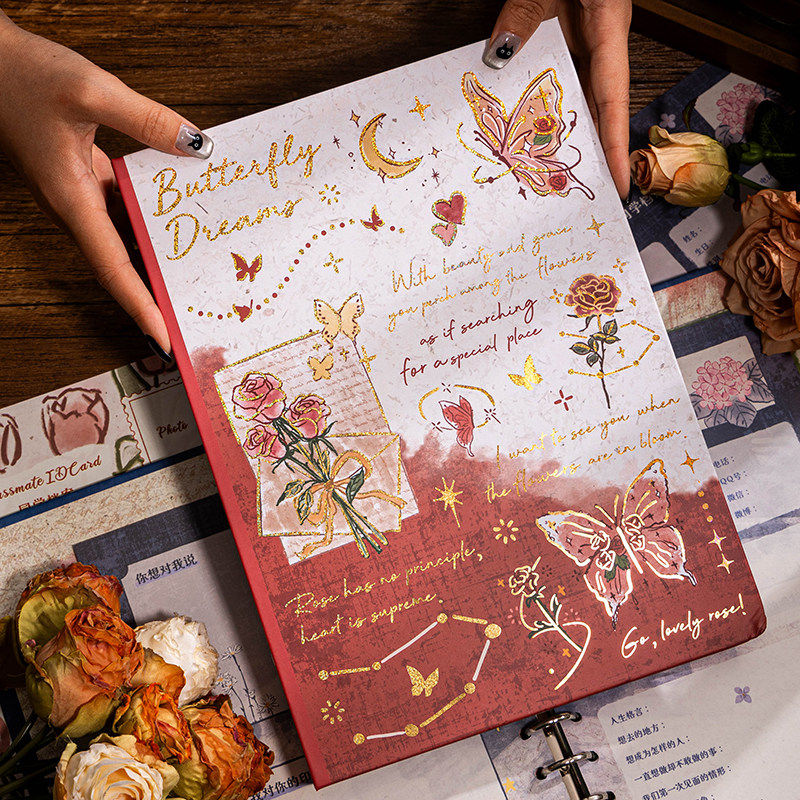 Butterfly
Dreams
With beauty and grace,
you perch among the flowers
as if searching
for a special place
I want to see you when
the flowers are in bloom.
Rose has no principle,
heart is supreme.
Go, lovely rose!
Photo
assmate ID Card
你想对我说
你对我的
姓名：
生日
电话：
QQ号：
微信：
微博：
人生格言：
想去的地方：
想成为怎样的人：
一直想做却不敢做的事：
我们第一次见面的情形：